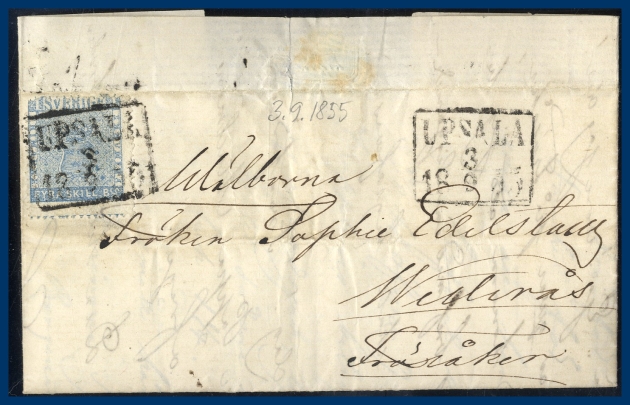 SVERIGE
UPSALA
3
18 9 5
FYRA SKILL. Bco
3.9.1855
UPSALA
3
18 9 55
Wälborna
Fröken Sophie Edelstam
Westerås
Frösåker